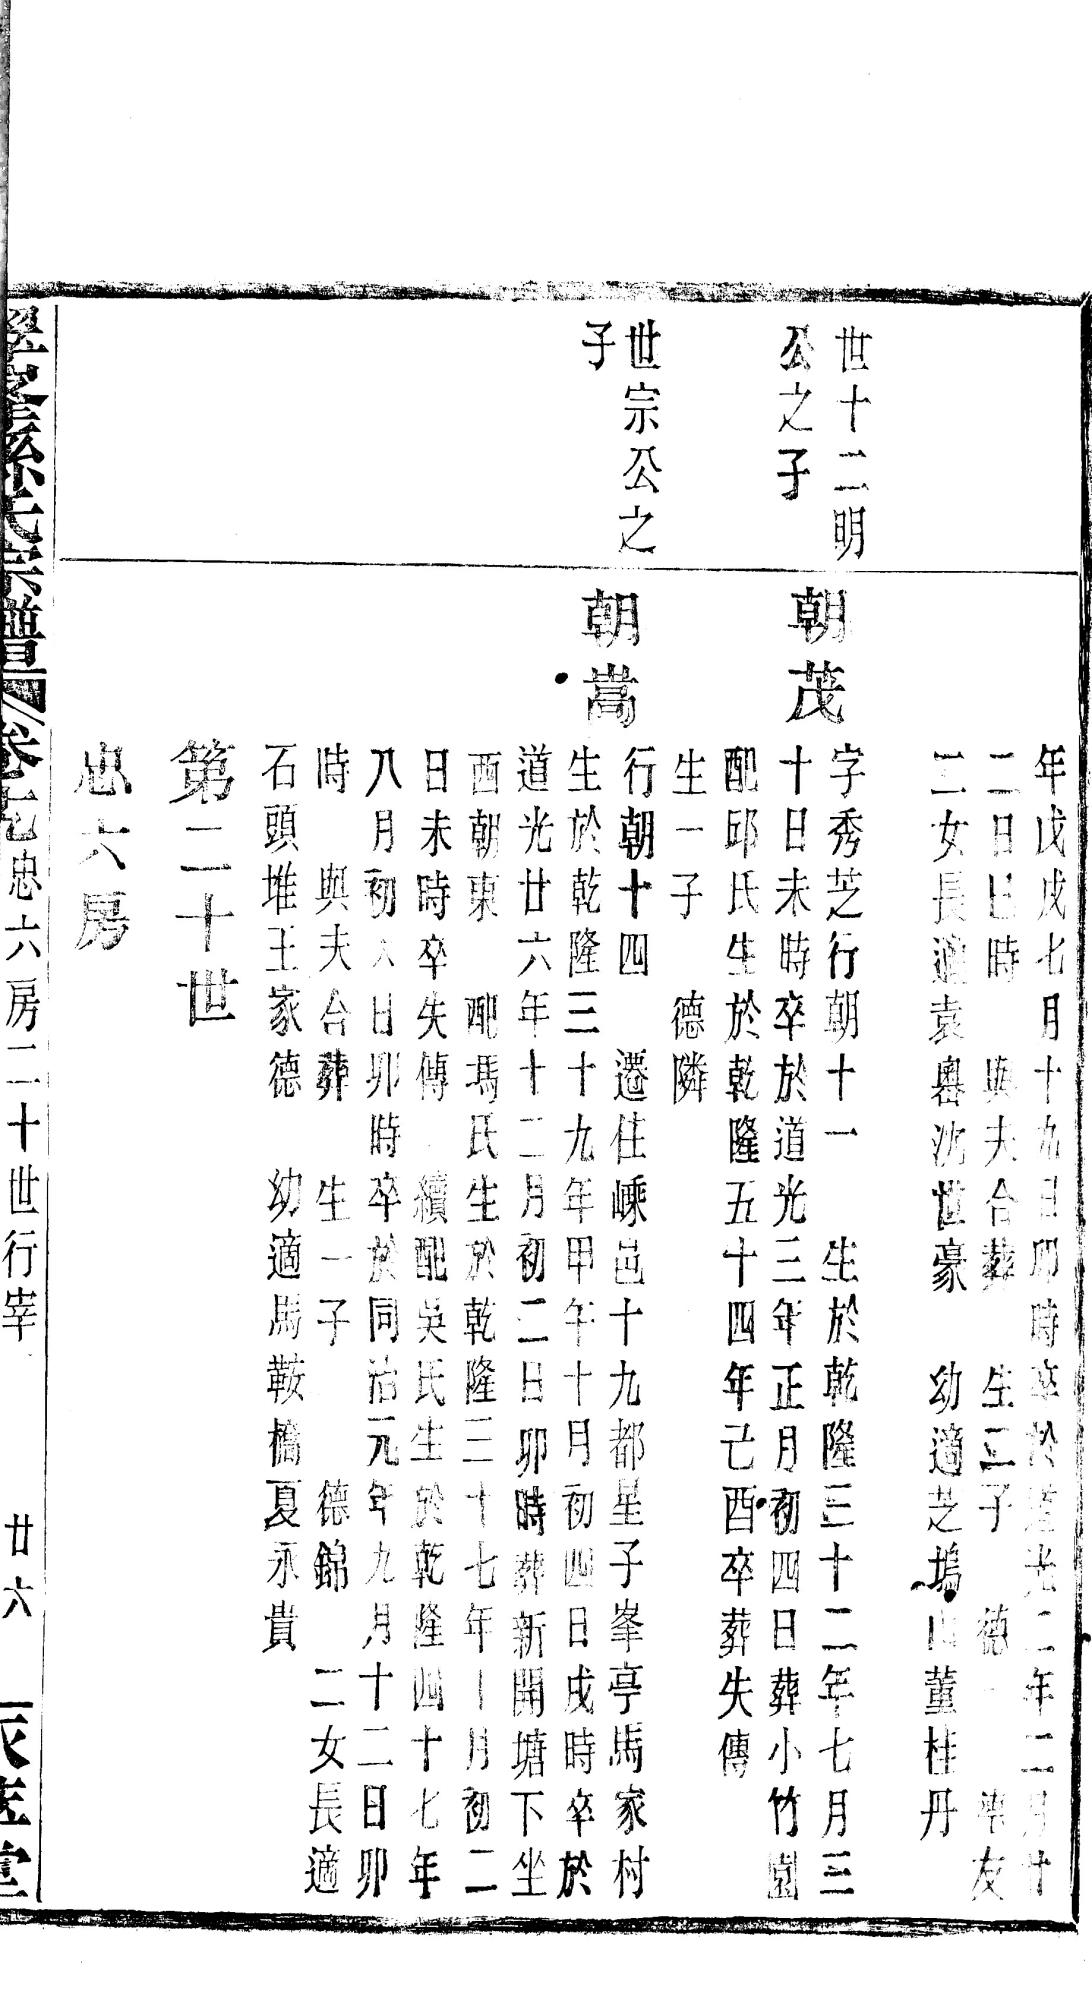 年戊戌七月十九日卯時卒於道光二年二月廿
二日巳時　與夫合葬　生二子　德　　友
二女長適袁嶴沈世豪　幼適芝塢山董桂丹
世十二明
公之子
朝茂
字秀芝行朝十一　生於乾隆三十二年七月三
十日未時卒於道光三年正月初四日葬小竹園
配邱氏生於乾隆五十四年己酉卒葬失傳
生一子　德隣
世宗公之
子
朝嵩
行朝十四　遷住嵊邑十九都星子峯亭馬家村
生於乾隆三十九年甲午十月初四日戌時卒於
道光廿六年十二月初二日卯時葬新開塘下坐
西朝東　配馮氏生於乾隆三十七年十月初二
日未時卒失傳　續配吳氏生於乾隆四十七年
八月初八日卯時卒於同治元年九月十二日卯
時　與夫合葬　生一子　德錦　二女長適
石頭堆王家德　幼適馬鞍橋夏永貴
第二十世
忠六房
孫氏宗譜　卷七　忠六房二十世行宰　廿六